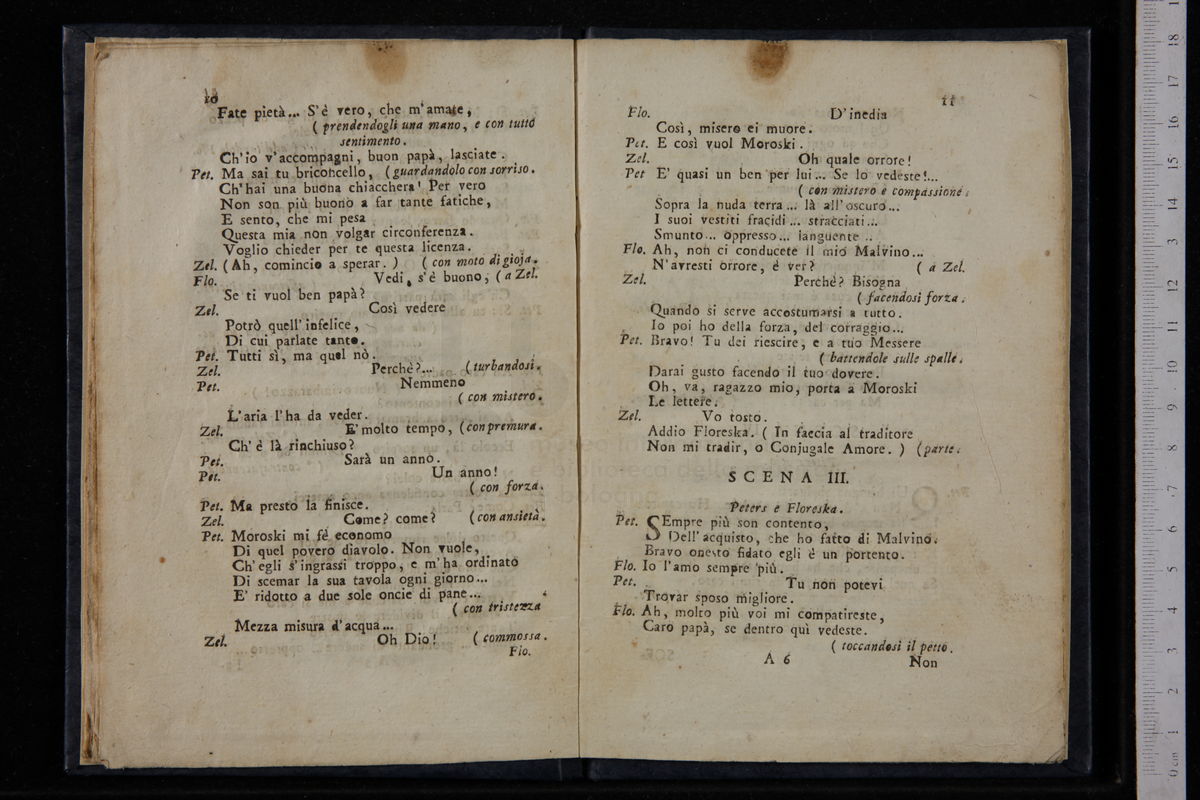 10
Fate pietà... S'è vero, che m'amate,
( prendendogli una mano, e con tutto
sentimento.
Ch'io v'accompagni, buon papà, lasciate.
Pet. Ma sai tu briconcello, (guardandolo con sorriso.
Ch'hai una buona chiacchera! Per vero
Non son più buono a far tante fatiche,
E sento, che mi pesa
Questa mia non volgar circonferenza.
Voglio chieder per te questa licenza.
Zel. (Ah, comincio a sperar. ) ( con moto di gioja.
Flo. Vedi, s'è buono, (a Zel.
Se ti vuol ben papà?
Zel. Così vedere
Potrò quell'infelice,
Di cui parlate tanto.
Pet. Tutti sì, ma quel nò.
Zel. Perchè?... (turbandosi.
Pet. Nemmeno
( con mistero.
L'aria l'ha da veder.
Zel. E' molto tempo, (con premura.
Ch'è là rinchiuso?
Pet. Sarà un anno.
Pet. Un anno!
( con forza.
Pet. Ma presto la finisce.
Zel. Come? come? (con ansietà.
Pet. Moroski mi fè economo
Di quel povero diavolo. Non vuole,
Ch'egli s'ingrassi troppo, e m'ha ordinato
Di scemar la sua tavola ogni giorno...
E' ridotto a due sole oncie di pane...
( con tristezza
Mezza misura d'acqua...
Zel. Oh Dio! (commossa.
Flo.
11
Flo. D'inedia
Così, misero ei muore.
Pet. E così vuol Moroski.
Zel. Oh quale orrore!
Pet E' quasi un ben per lui... Se lo vedeste!...
( con mistero e compassione.
Sopra la nuda terra... là all'oscuro...
I suoi vestiti fracidi... stracciati...
Smunto... oppresso... languente ..
Flo. Ah, non ci conducete il mio Malvino...
N'avresti orrore, é ver? ( a Zel.
Zel. Perchè? Bisogna
( facendosi forza.
Quando si serve accostumarsi a tutto.
Io poi ho della forza, del corraggio...
Pet. Bravo! Tu dei riescire, e a tuo Messere
( battendole sulle spalle.
Darai gusto facendo il tuo dovere.
Oh, va, ragazzo mio, porta a Moroski
Le lettere.
Zel. Vo tosto.
Addio Floreska. ( In faccia al traditore
Non mi tradir, o Conjugale Amore. ) (parte.
SCENA III.
Peters e Floreska.
Pet. SEmpre più son contento,
Dell'acquisto, che ho fatto di Malvino.
Bravo onesto fidato egli é un portento.
Flo. Io l'amo sempre più.
Pet. Tu non potevi
Trovar sposo migliore.
Flo. Ah, molto più voi mi compatireste,
Caro papà, se dentro quì vedeste.
( toccandosi il petto.
A 6 Non